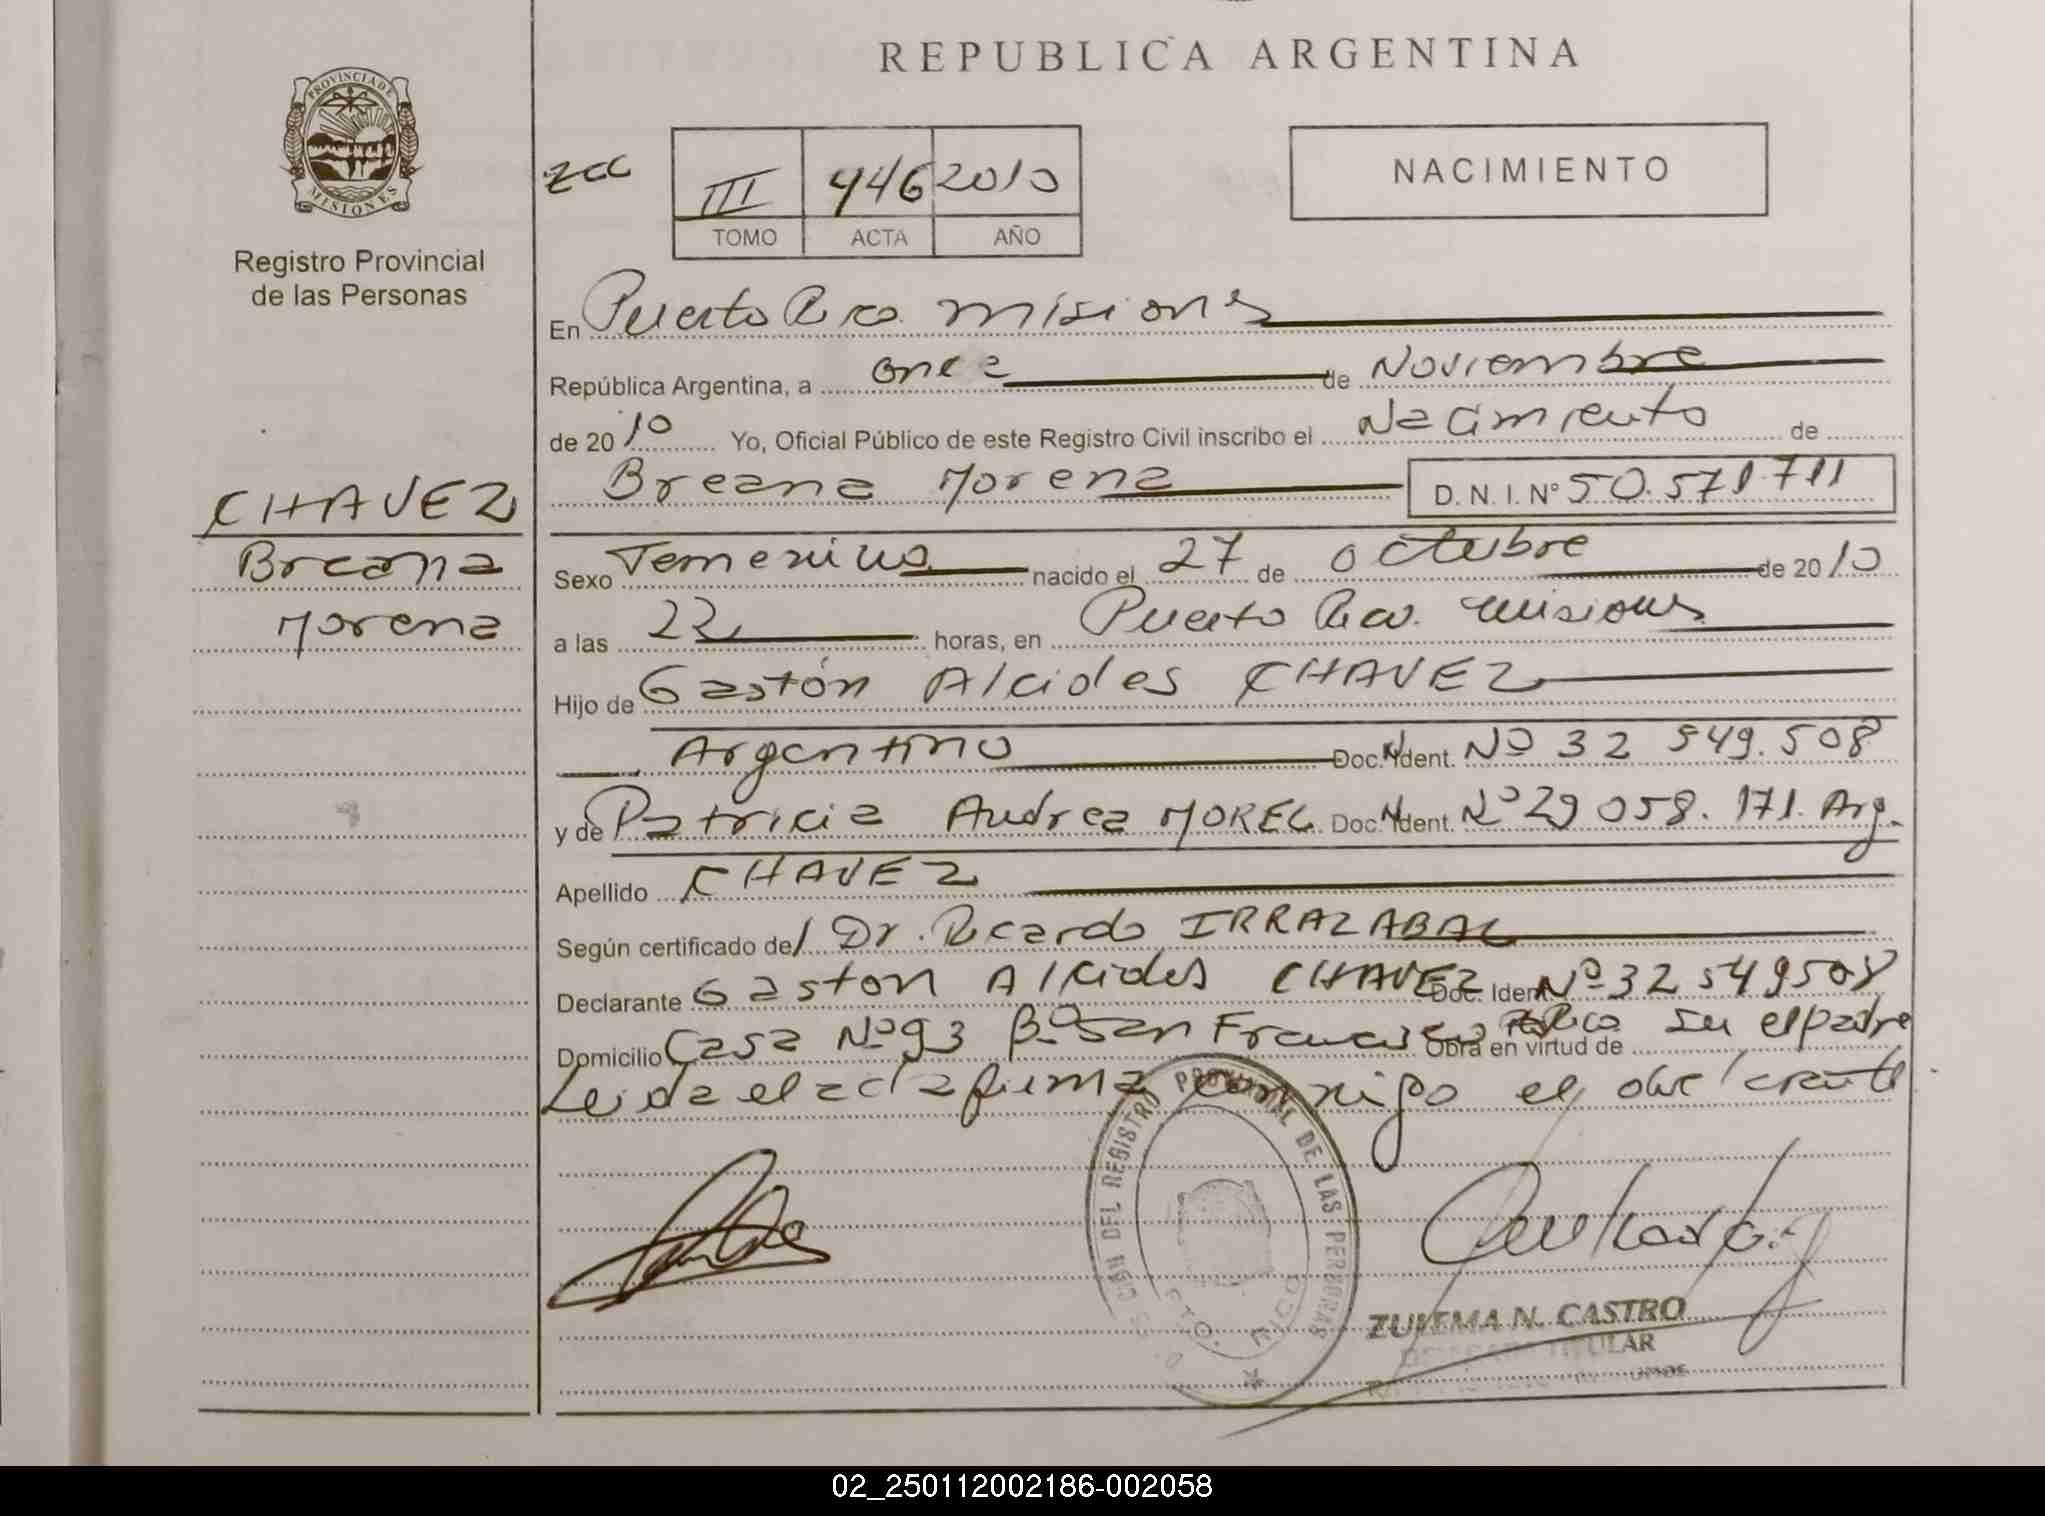 REPUBLICA ARGENTINA
PROVINCIA DE
MISIONES
Registro Provincial
de las Personas
III 446 2010
TOMO ACTA AÑO
NACIMIENTO
En Puerto Rico Misiones
República Argentina, a once de Noviembre
de 2010 Yo, Oficial Público de este Registro Civil inscribo el Nacimiento de
Breana Morena D. N. I. Nº 50.571.711
CHAVEZ
Breana
Morena
Sexo Femenino nacido el 27 de octubre de 2010
a las 22 horas, en Puerto Rico. Misiones
Hijo de Gastón Alcides CHAVEZ
Argentino Doc. Ident. Nº 32 549.508
y de Patricia Andrea MOREL Doc. Ident. Nº 29 058.171. Arg.
Apellido CHAVEZ
Según certificado del Dr. Ricardo IRRAZABAL
Declarante Gaston Alcides CHAVEZ Doc. Ident. Nº 32 549508
Domicilio Casa Nº 93 Bº San Francisco Obra en virtud de su el padre
Leida el acta firma conmigo el declarante
DEL REGISTRO PROVINCIAL DE LAS PERSONAS
PTO. RICO
ZULEMA N. CASTRO
TITULAR
02_250112002186-002058